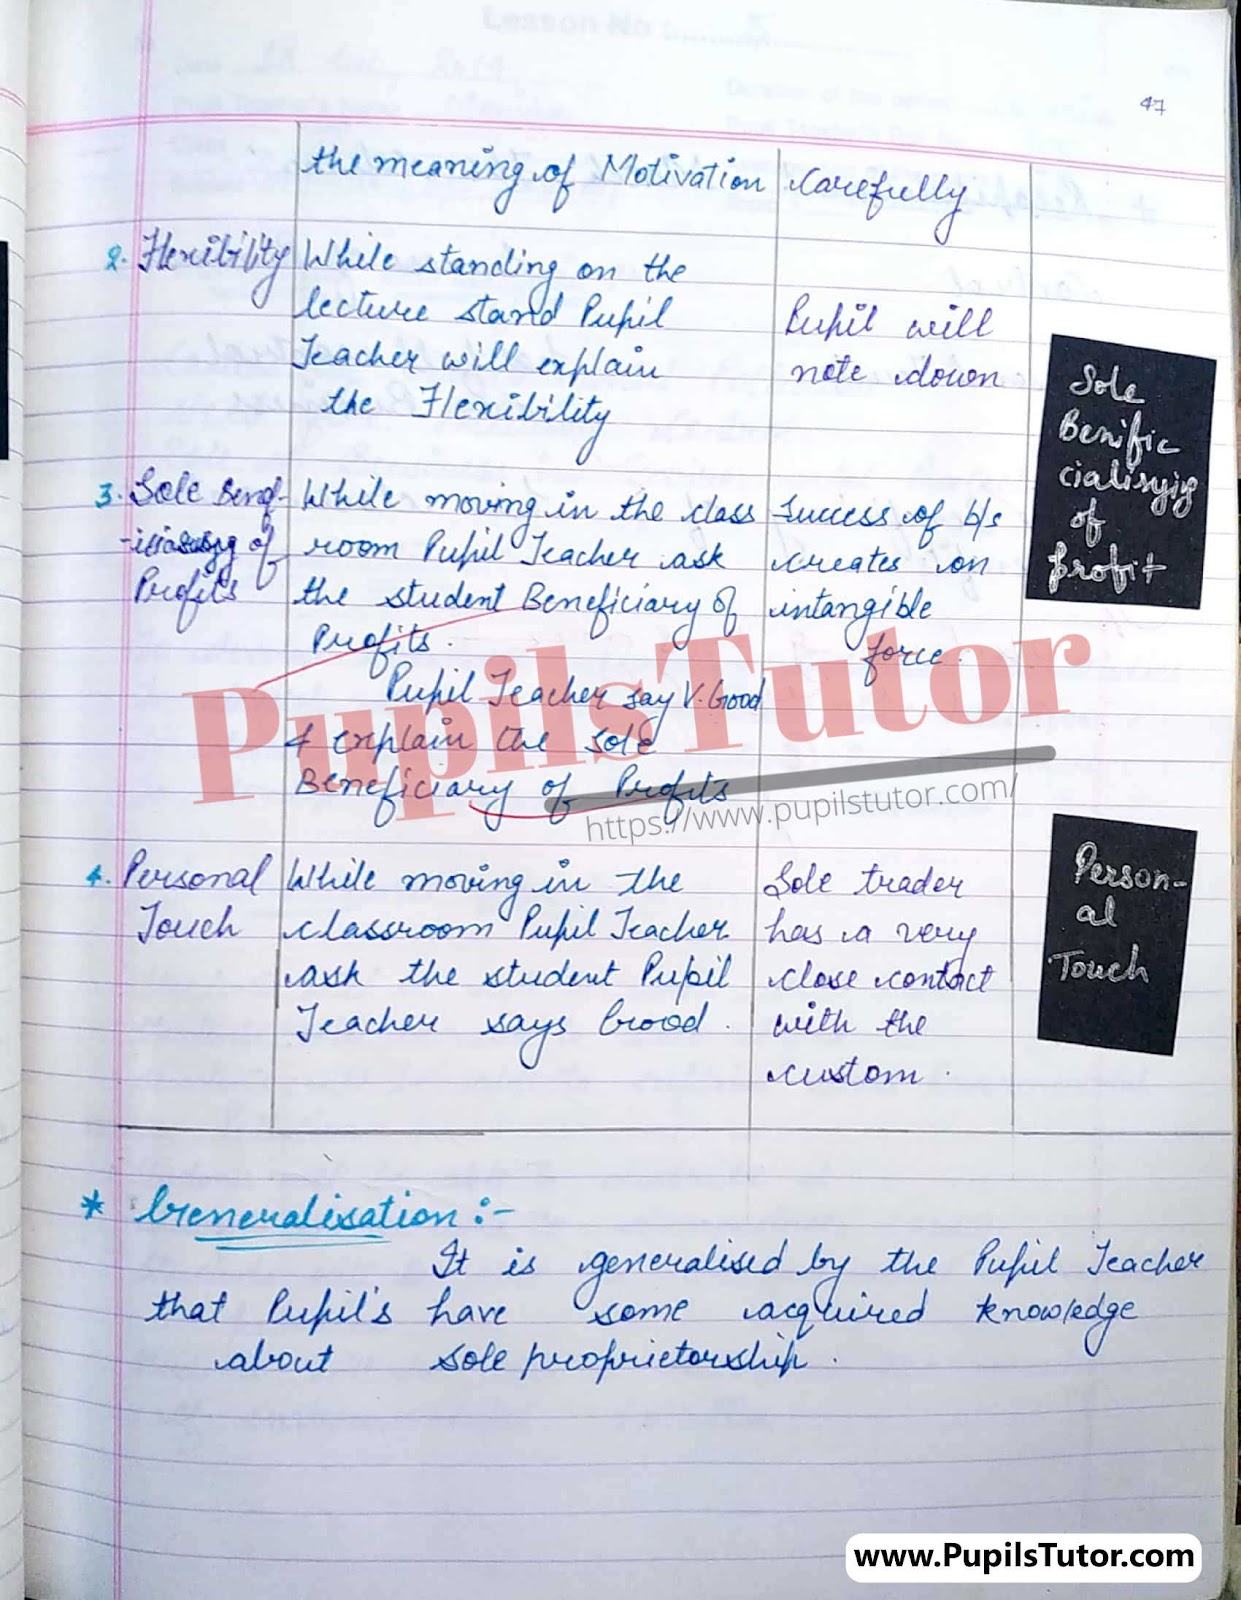 47
the meaning of Motivation
carefully
2. Flexibility
While standing on the
lecture stand Pupil
Teacher will explain
the Flexibility
Pupil will
note down
Sole
Benific
cialisyjg
of
profit
3. Sole Benef-
of
Profits
While moving in the class
room Pupil Teacher ask
the student Beneficiary of
Profits.
Pupil Teacher say V. Good
& explain the sole
Beneficiary of Profits
Success of b/s
creates on
intangible
force.
PupilsTutor
https://www.pupilstutor.com/
4. Personal
Touch
While moving in the
classroom Pupil Teacher
ask the student Pupil
Teacher says Good.
Sole trader
has a very
close contact
with the
custom.
Person-
al
Touch
* Generalisation :-
It is generalised by the Pupil Teacher
that Pupil's have some acquired knowledge
about sole proprietorship.
www.PupilsTutor.com